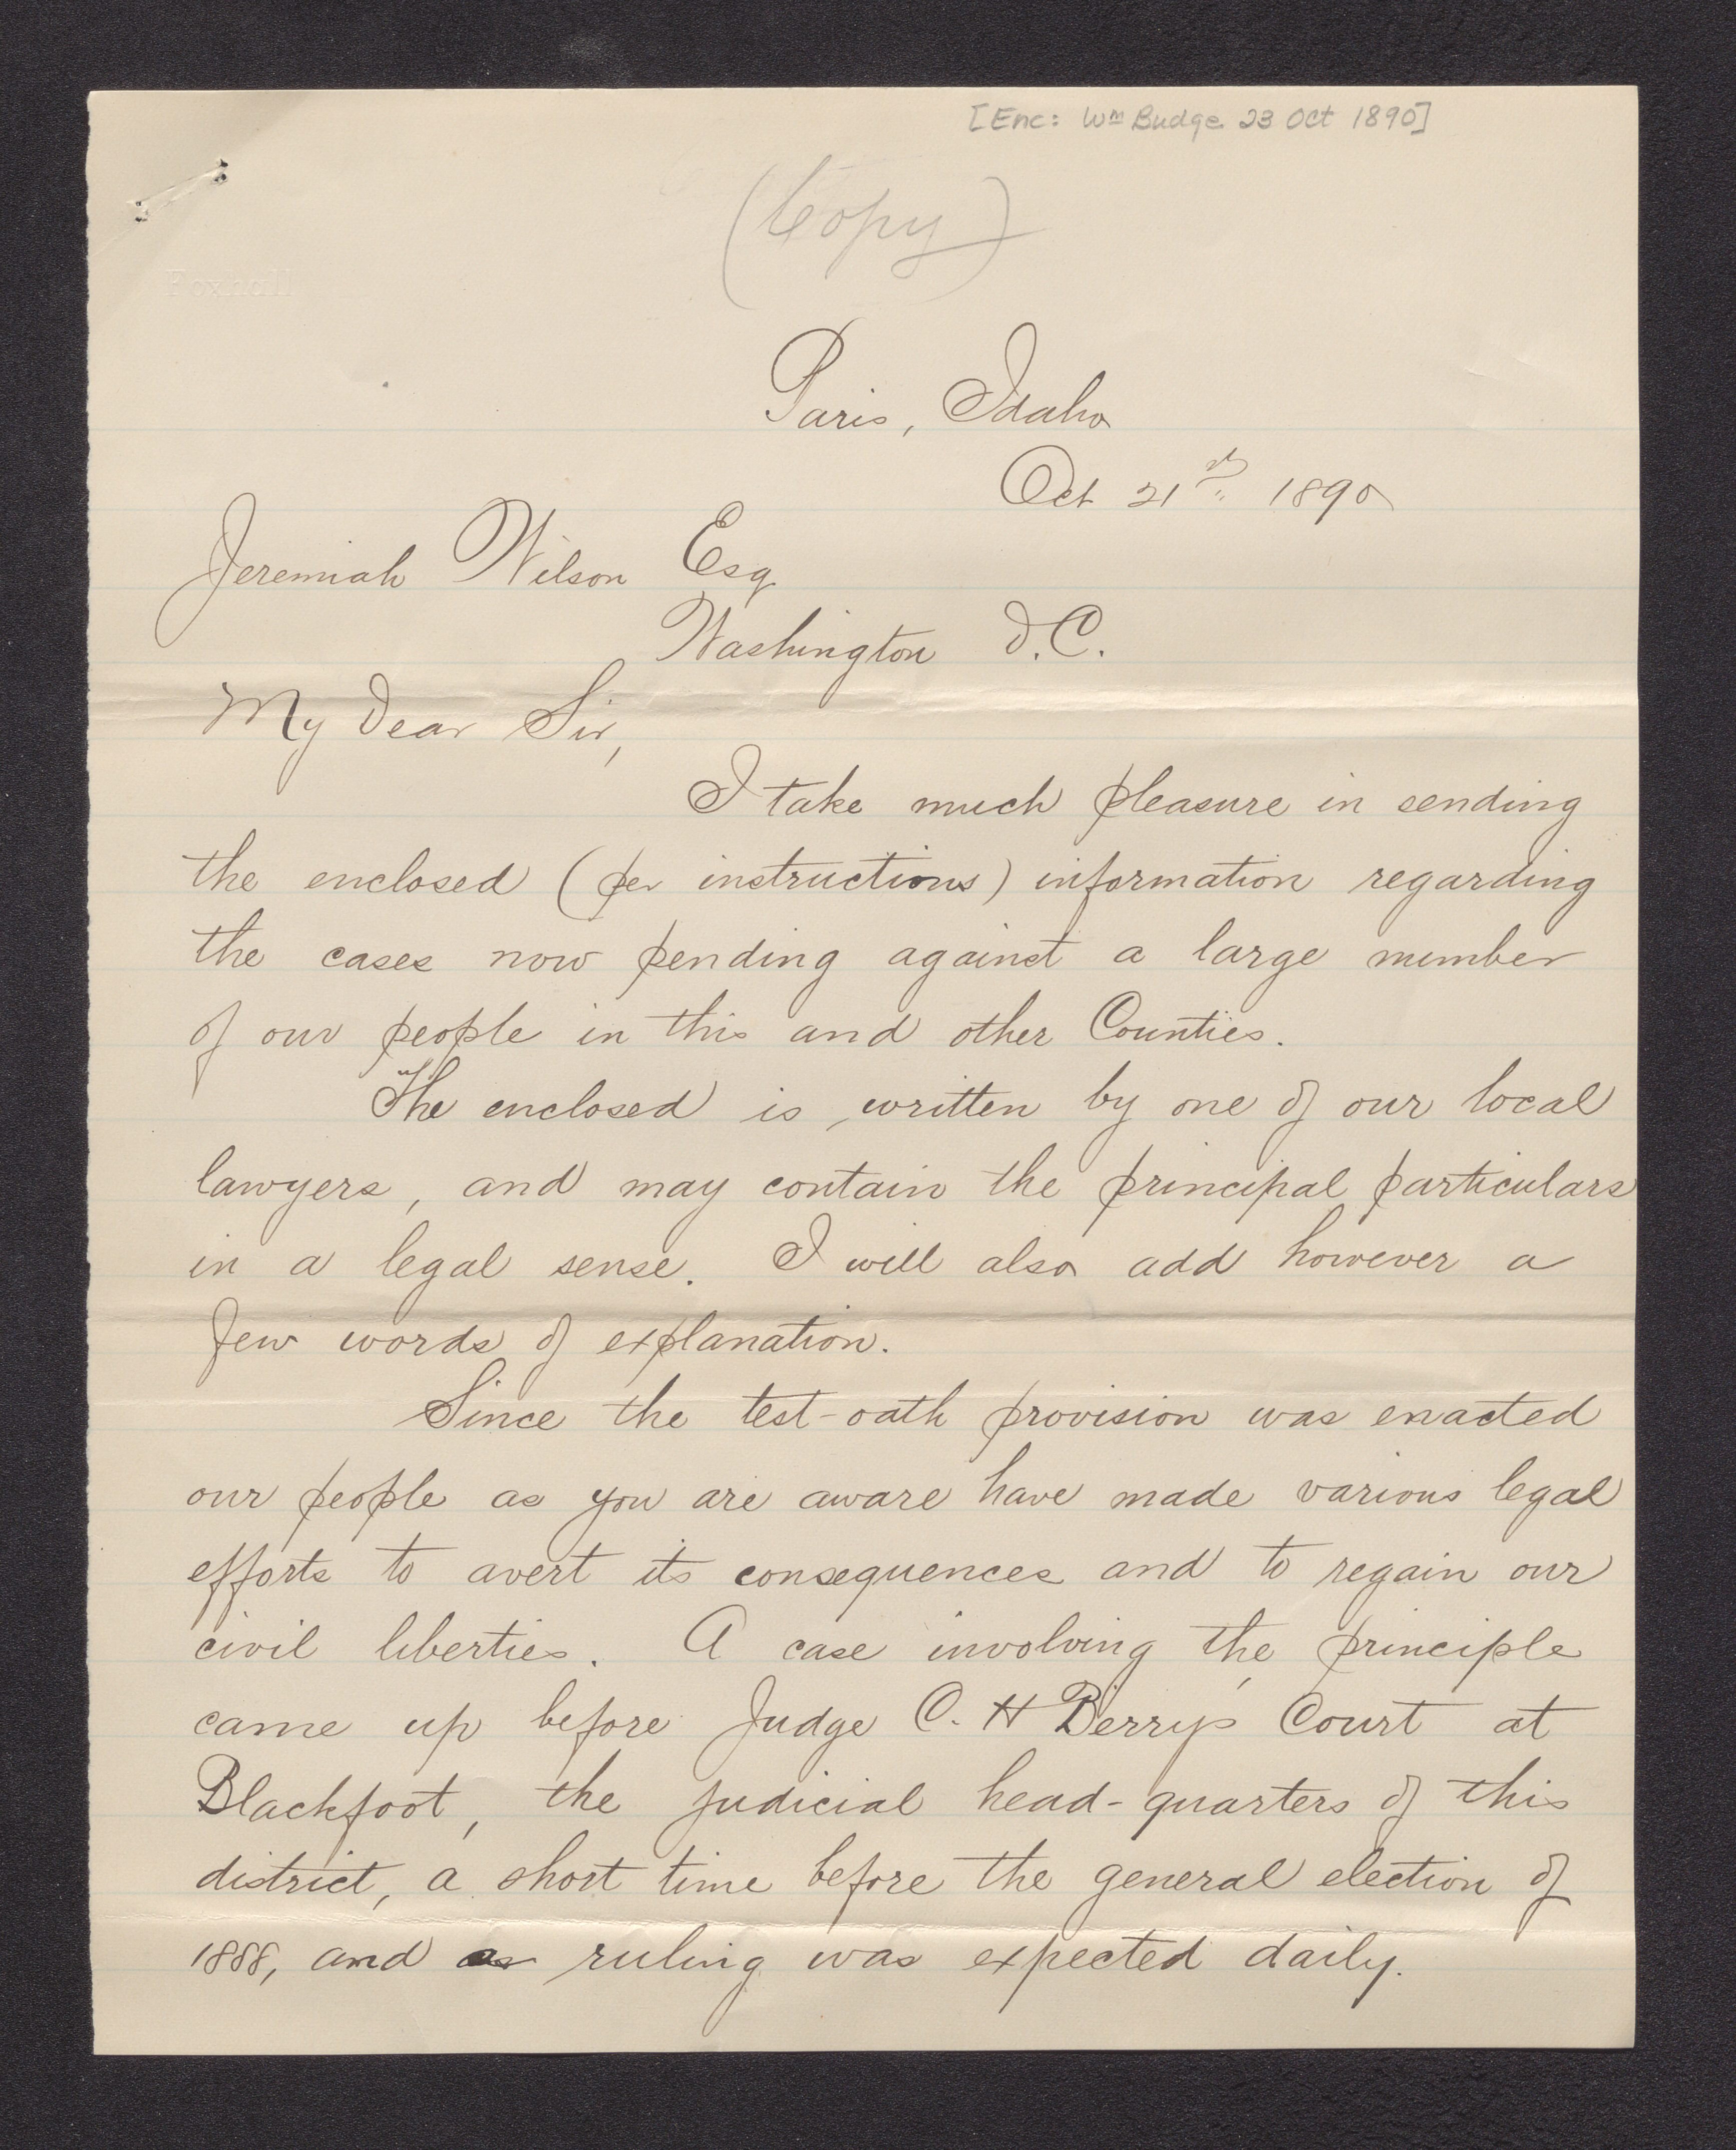 [Enc: Wm Budge 23 Oct 1890]
(Copy)
Foxhall
Paris, Idaho
Oct 21st 1890
Jeremiah Wilson Esq
Washington D.C.
My Dear Sir,
I take much pleasure in sending
the enclosed (per instructions) information regarding
the cases now pending against a large number
of our people in this and other Counties.
The enclosed is written by one of our local
lawyers, and may contain the principal particulars
in a legal sense. I will also add however a
few words of explanation.
Since the test-oath provision was enacted
our people as you are aware have made various legal
efforts to avert its consequences and to regain our
civil liberties. A case involving the principle
came up before Judge C. H Berry's Court at
Blackfoot, the judicial head-quarters of this
district, a short time before the general election of
1888, and a ruling was expected daily.